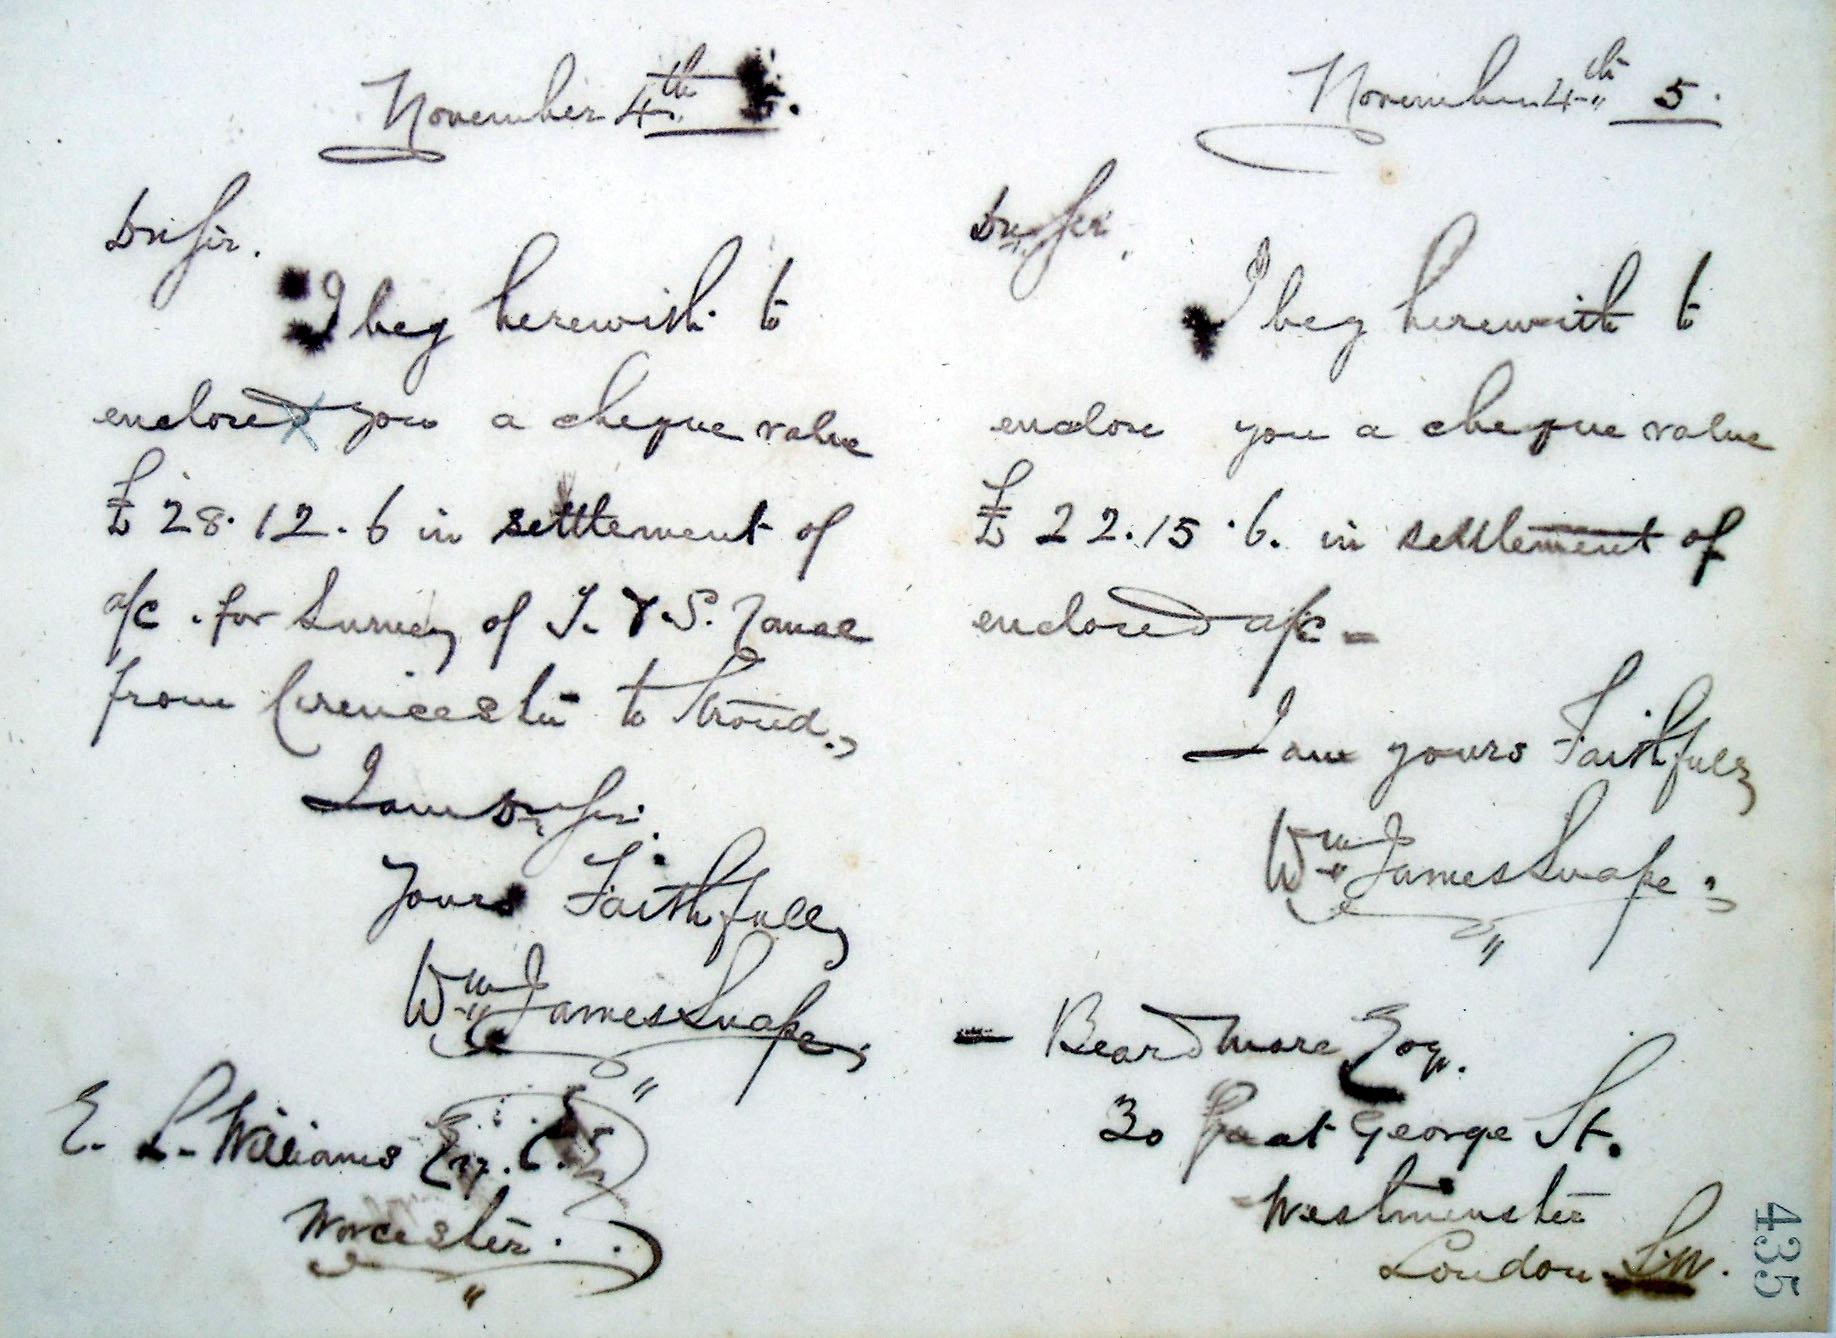 November 4th
Dr Sir.
I beg herewith to
enclosed you a cheque value
£28.12.6 in settlement of
a/c. for Survey of T. & S. Canal
from Cirencester to Stroud.,
I am Dr Sir.
Yours Faithfully
Wm James Snape,
E. L. Williams Esq. C.E.
Worcester.
November 4th 5.
Dr Sir.
I beg herewith to
enclose you a cheque value
£22.15.6. in settlement of
enclosed a/c –
I am yours Faithfully
Wm James Snape
– Beardmore Esq.
30 Great George St.
Westminster
London S.W.
435